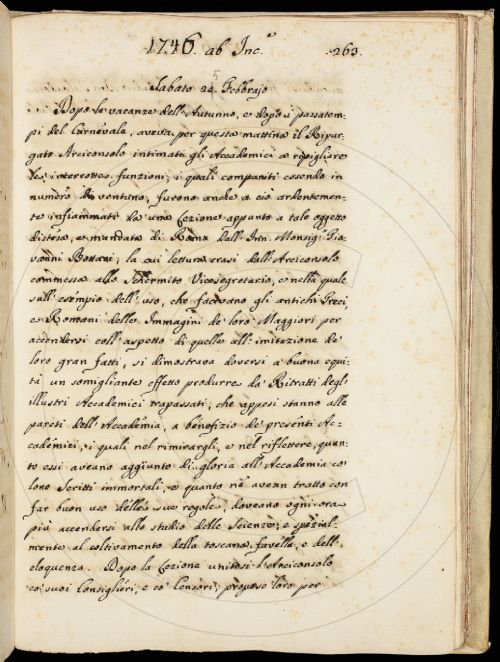 1746. ab Inc.ᵉ 263.
Sabato 24 5 Febbrajo
Dopo le vacanze dell' Autunno, e dopo i passatem-
pi del Carnevale, aveva per questa mattina il Ripur-
gato Arciconsolo intimati gli Accademici a ripigliare
le interrotte funzioni, i quali compariti essendo in
numero di ventino, furono anche a ciò ardentemen-
te infiammati da una Lezione appunto a tale oggetto
distesa, e mandata di Roma dall' Inn. Monsig.ʳ Gio-
vanni Bottari, la cui lettura erasi dall' Arciconsolo
commessa allo Schermito Vicesegretario, e nella quale
sull' esempio dell' uso, che facevano gli antichi Greci,
e Romani delle Immagini de' loro Maggiori per
accendersi coll' aspetto di quelle all' imitazione de'
loro gran fatti, si dimostrava doversi a buona equi-
tà un somigliante effetto produrre da' Ritratti degl'
illustri Accademici trapassati, che appesi stanno alle
pareti dell' Accademia, a benefizio de' presenti Ac-
cademici, i quali nel rimirargli, e nel riflettere, quan-
to essi aveano aggiunto di gloria all' Accademia co'
loro Scritti immortali, e quanto ne avean tratto con
far buon uso delle sue regole, doveano ogni ora
più accendersi allo studio delle Scienze, e spezial-
mente al coltivamento della toscana favella, e dell'
eloquenza. Dopo la Lezione unitosi l'Arciconsolo
co' suoi Consiglieri, e co' Censori, propose loro per